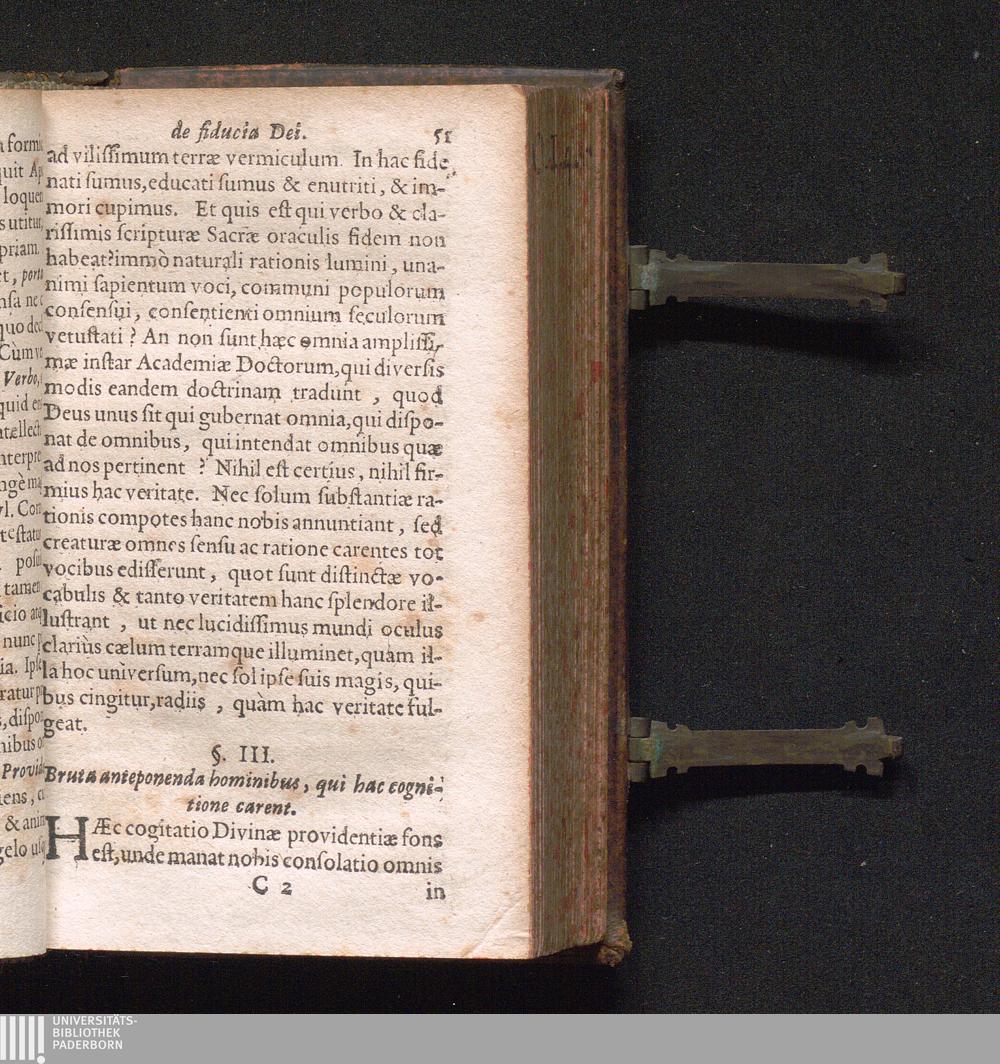 de fiducia Dei. 51
ad viliſſimum terræ vermiculum. In hac fide
nati ſumus, educati ſumus & enutriti, & im-
mori cupimus. Et quis eſt qui verbo & cla-
riſſimis ſcripturæ Sacræ oraculis fidem non
habeat? immò naturali rationis lumini, una-
nimi ſapientum voci, communi populorum
conſenſui, conſentienti omnium ſeculorum
vetuſtati? An non ſunt hæc omnia ampliſſi-
mæ inſtar Academiæ Doctorum, qui diverſis
modis eandem doctrinam tradunt, quod
Deus unus ſit qui gubernat omnia, qui diſpo-
nat de omnibus, qui intendat omnibus quæ
ad nos pertinent? Nihil eſt certius, nihil fir-
mius hac veritate. Nec ſolum ſubſtantiæ ra-
tionis compotes hanc nobis annuntiant, ſed
creaturæ omnes ſenſu ac ratione carentes tot
vocibus ediſſerunt, quot ſunt diſtinctæ vo-
cabulis & tanto veritatem hanc ſplendore il-
luſtrant, ut nec lucidiſſimus mundi oculus
clariùs cælum terramque illuminet, quàm il-
la hoc univerſum, nec ſol ipſe ſuis magis, qui-
bus cingitur, radiis, quàm hac veritate ful-
geat.
§. III.
Bruta anteponenda hominibus, qui hac cogni-
tione carent.
HÆc cogitatio Divinæ providentiæ fons
eſt, unde manat nobis conſolatio omnis
C 2 in
UNIVERSITÄTS-
BIBLIOTHEK
PADERBORN